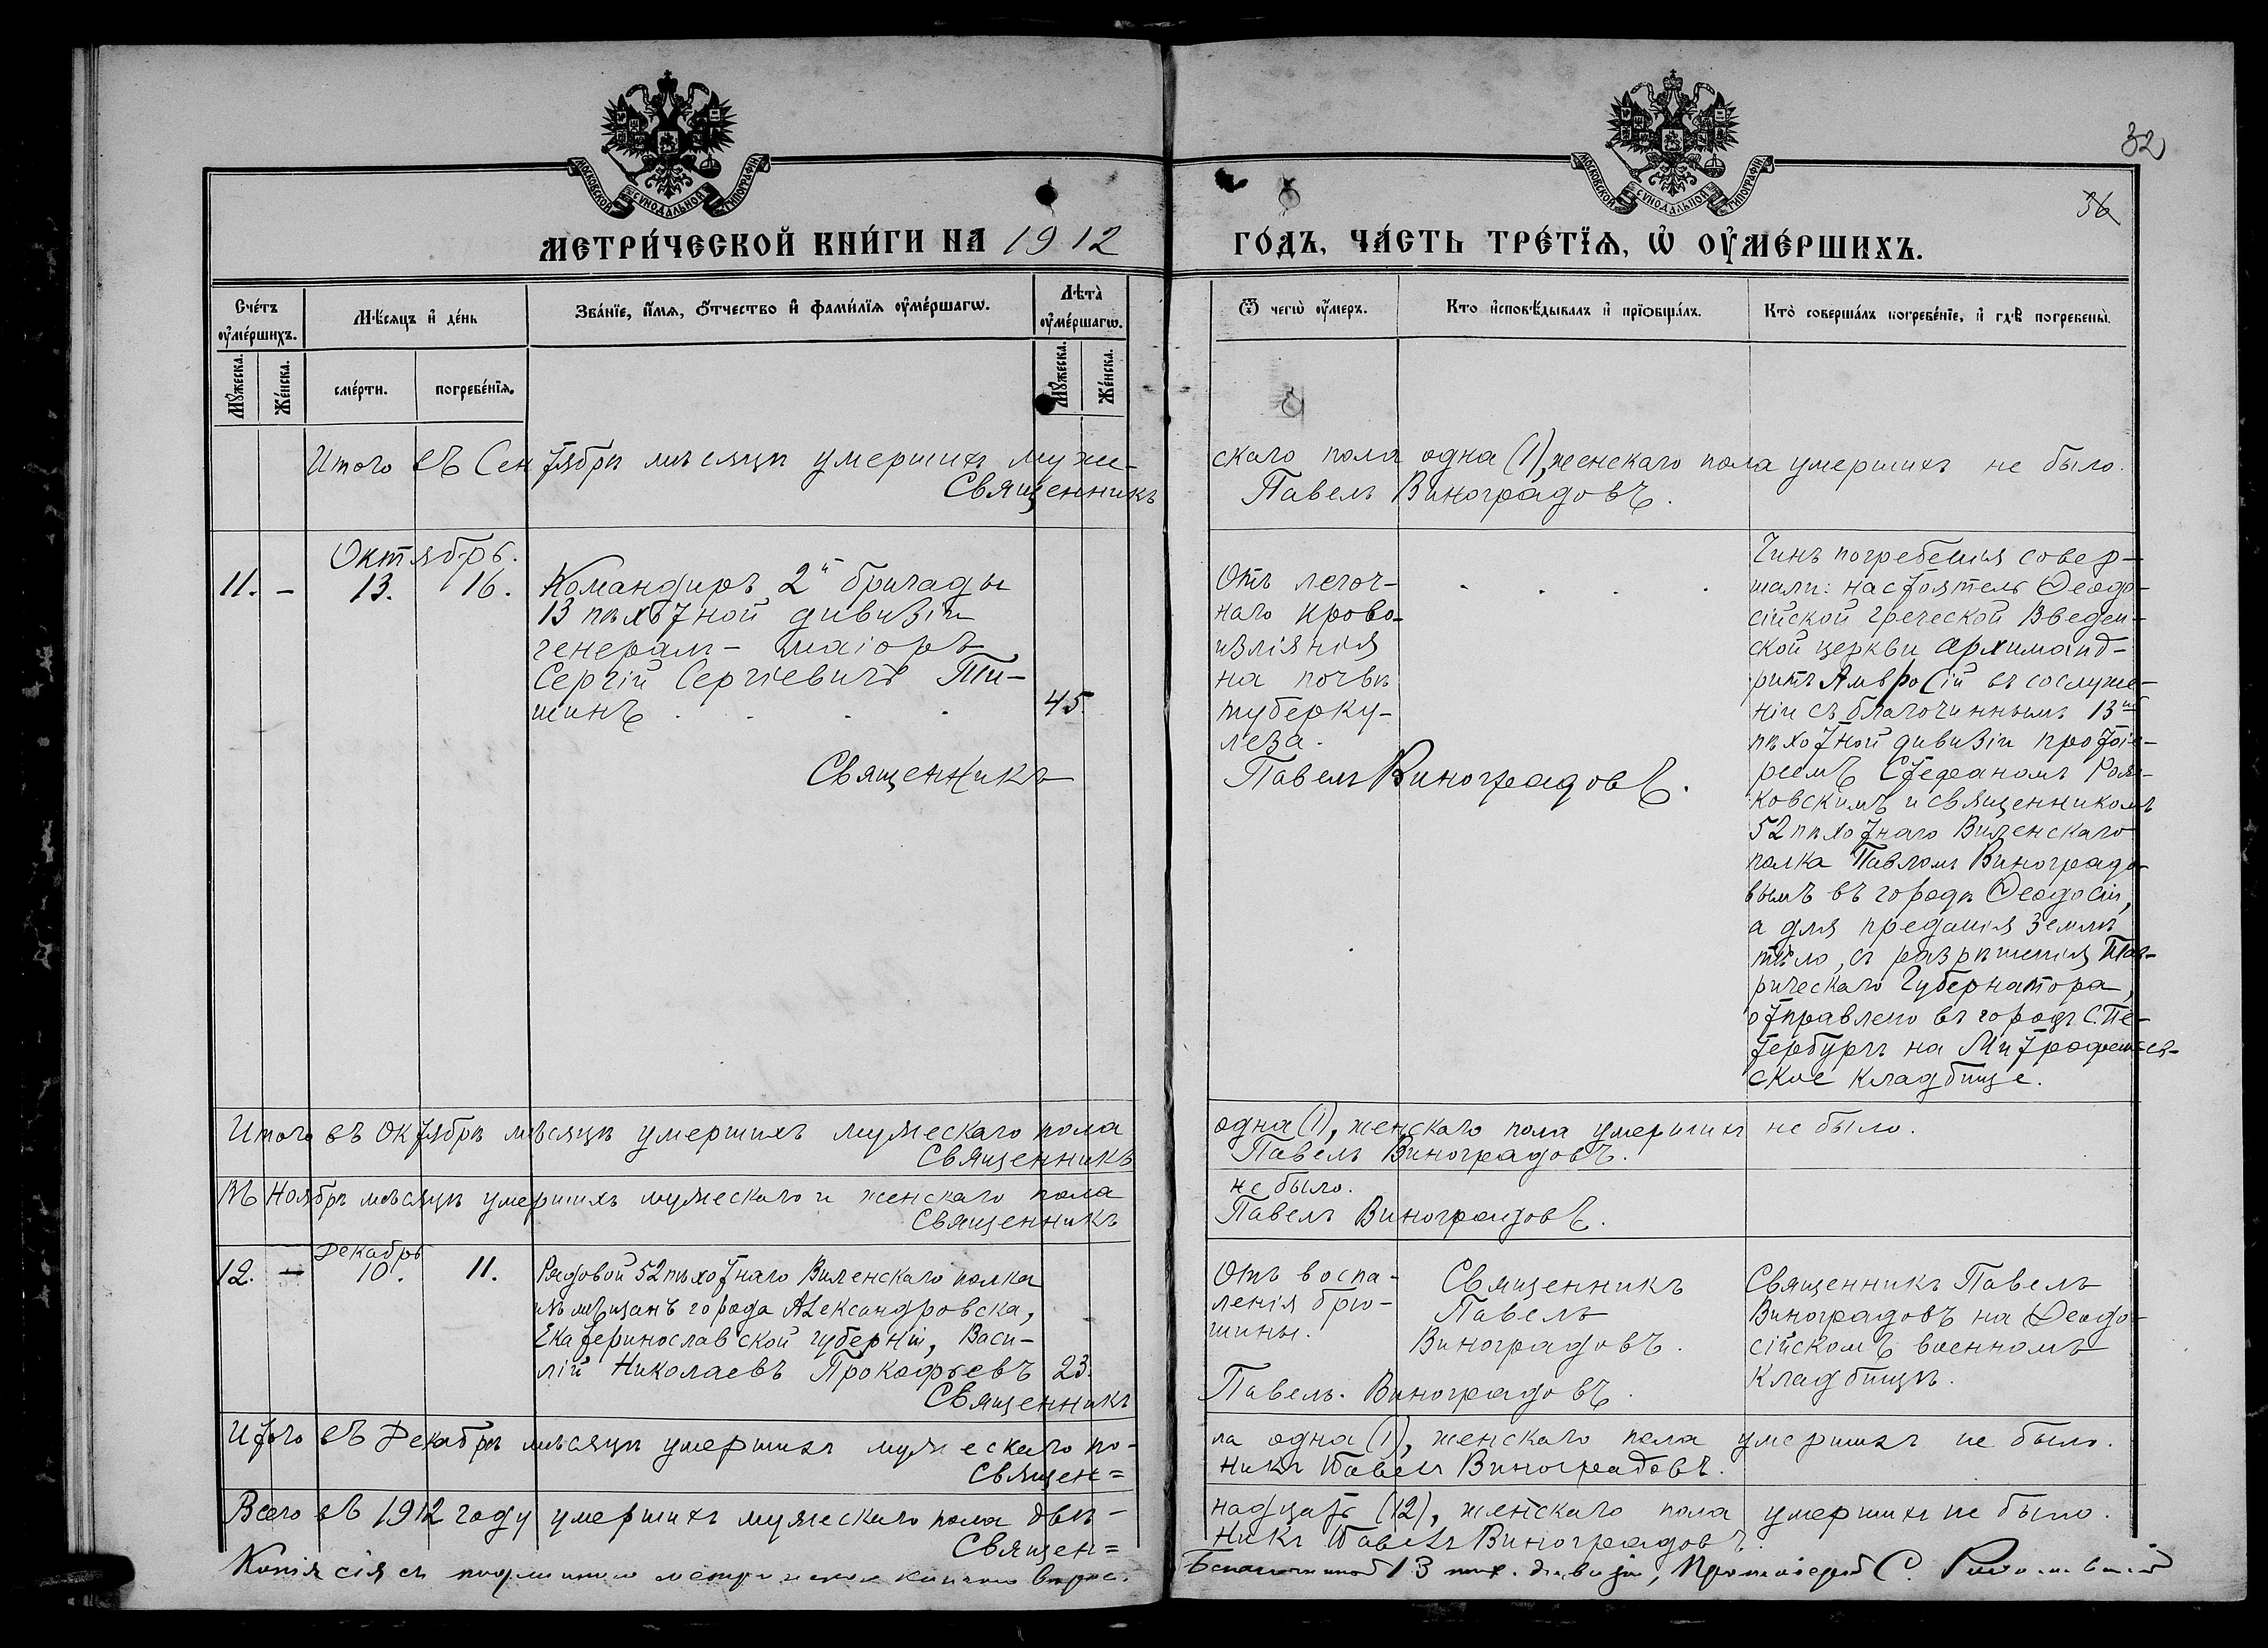 32
36
МОСКОВСКОЙ СѴНОДАЛЬНОЙ ТИПОГРАФІИ
МОСКОВСКОЙ СѴНОДАЛЬНОЙ ТИПОГРАФІИ
МЕТРИ́ЧЕСКОЙ КНИ́ГИ НА 1912
ГО́ДЪ, ЧА́СТЬ ТРЕ́ТЇѦ, Ѡ҆ ОУ҆МЕ́РШИХЪ.
Сче́тъ оу҆ме́ршихъ.
Мꙋ́жеска.
Же́нска.
Мѣ́сѧцъ и҆ де́нь
сме́рти.
погребе́нїѧ.
Зва́нїе, и҆́мѧ, ѻ҆́тчество и҆ фами́лїѧ оу҆ме́ршагѡ.
Лѣта̀ оу҆ме́ршагѡ.
Мꙋ́жеска.
Же́нска.
Ѿ чегѡ̀ оу҆́меръ.
Кто̀ и҆сповѣ́дывалъ и҆ прїѡбща́лъ.
Кто̀ соверша́лъ погребе́нїе, и҆ гдѣ̀ погребены̀.
Итого въ Сентябрѣ мѣсяцѣ умершихъ муже-
скаго пола одна (1), женскаго пола умершихъ не было.
Священникъ
Павелъ Виноградовъ.
Октябрь.
11. – 13. 16.
Командиръ 2й бригады
13 пѣхотной дивизіи
генералъ-маіоръ
Сергій Сергіевичъ Ти-
шинъ . . . . 45.
Священникъ
Отъ легоч-
наго крово-
изліянія
на почвѣ
туберку-
леза.
Павелъ Виноградовъ.
. . . .
Чинъ погребенія совер-
шали: настоятель Ѳеодо-
сійской греческой Введен-
ской церкви архиманд-
ритъ Амвросій въ сослуже-
ніи съ благочиннымъ 13ой
пѣхотной дивизіи протоіе-
реемъ Стефаномъ
ковскимъ и священникомъ
52 пѣхотнаго Виленскаго
полка Павломъ Виноградо-
вымъ въ городѣ Ѳеодосіи,
а для преданія землѣ
тѣло, съ разрѣшенія Тав-
рическаго Губернатора,
отправлено въ городъ С.Пе-
тербургъ на Митрофаньев-
ское кладбище.
Итого въ Октябрѣ мѣсяцѣ умершихъ мужескаго пола
одна (1), женскаго пола умершихъ не было.
Священникъ
Павелъ Виноградовъ.
Въ Ноябрѣ мѣсяцѣ умершихъ мужескаго и женскаго пола
не было.
Священникъ
Павелъ Виноградовъ.
Декабрь
12. – 10. 11.
Рядовой 52 пѣхотнаго Виленскаго полка
изъ мѣщанъ города Александровска,
Екатеринославской губерніи, Васи-
лій Николаевъ Прокофьевъ 23.
Священникъ
Отъ воспа-
ленія брю-
шины.
Павелъ Виноградовъ.
Священникъ
Павелъ
Виноградовъ.
Священникъ Павелъ
Виноградовъ на Ѳеодо-
сійскомъ военномъ
кладбищѣ.
Итого въ Декабрѣ мѣсяцѣ умершихъ мужескаго по-
ла одна (1), женскаго пола умершихъ не было.
Священ=
никъ Павелъ Виноградовъ.
Всего въ 1912 году умершихъ мужескаго пола двѣ-
надцать (12), женскаго пола умершихъ не было.
Священ=
никъ Павелъ Виноградовъ.
Копія сія съ подлинною метрическою книгою вѣрна.
Благочинный 13 пѣх. дивизіи, Протоіерей С.